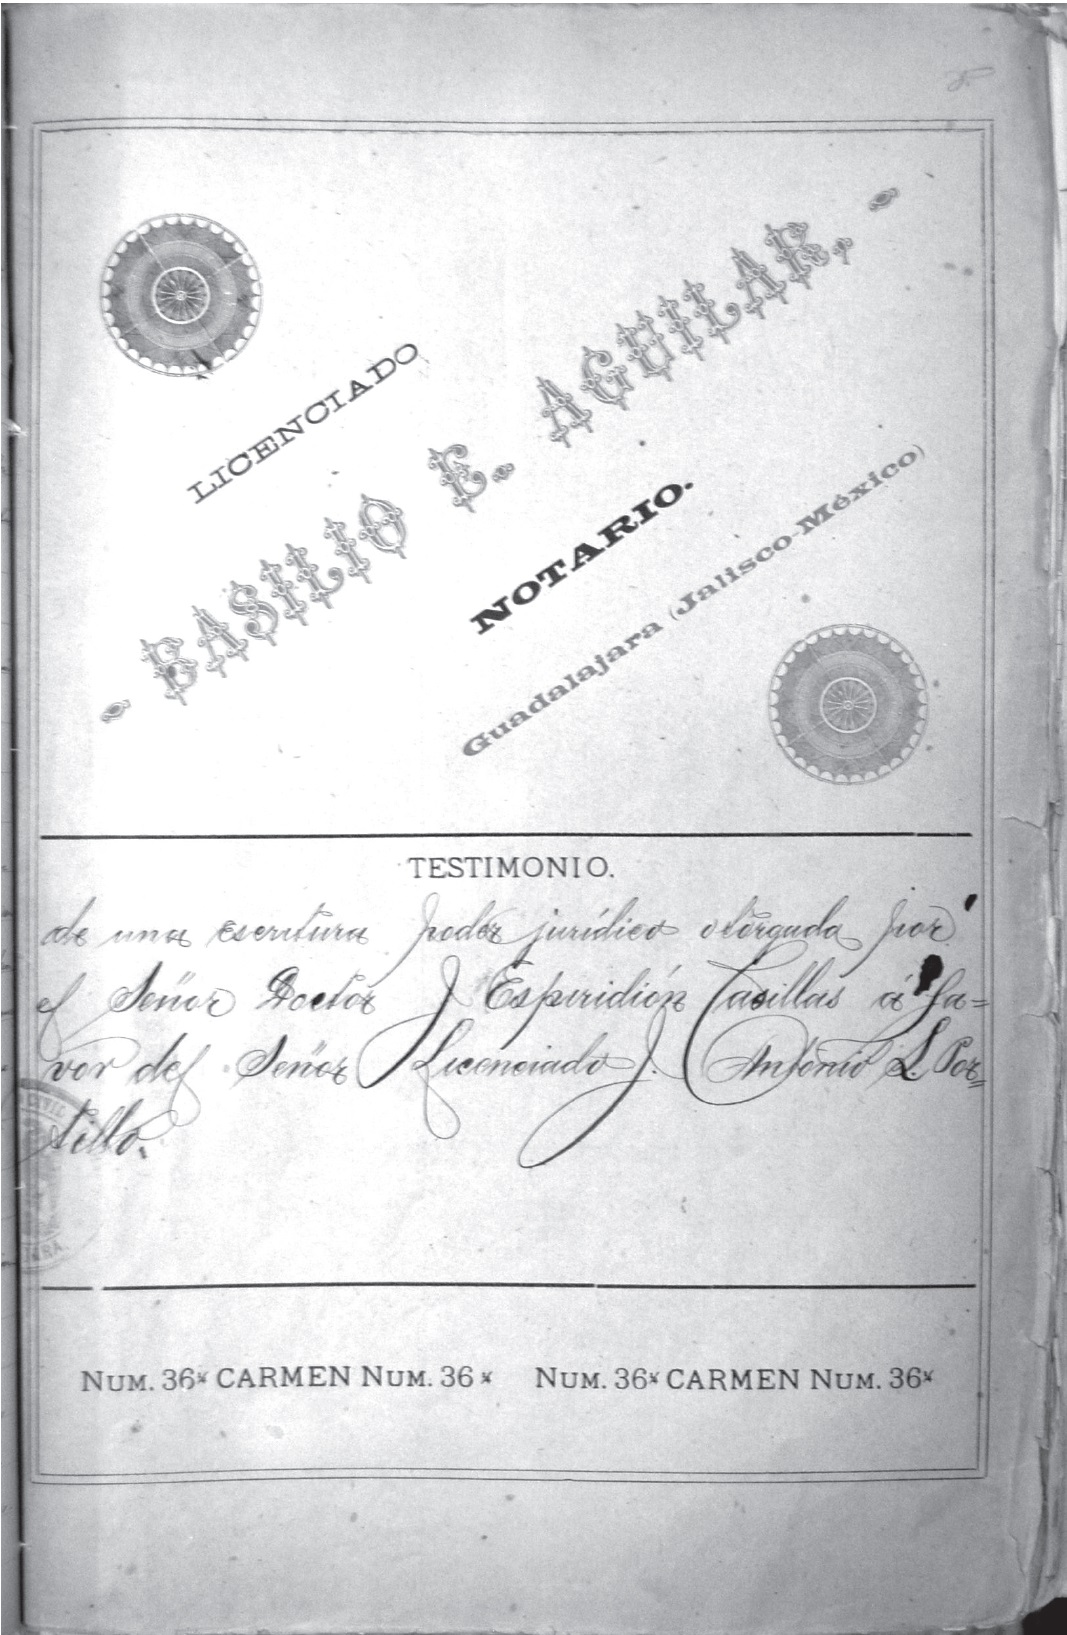 LICENCIADO
- BASILIO E. AGUILAR. -
NOTARIO.
Guadalajara (Jalisco-México)
TESTIMONIO.
de una escritura poder jurídico otorgada por
el Señor Doctor J Espiridión Casillas á fa=
vor del Señor Licenciado J. Antonio L. Por=
tillo.
CIVIL
NUM. 36 CARMEN NUM. 36 NUM. 36 CARMEN NUM. 36